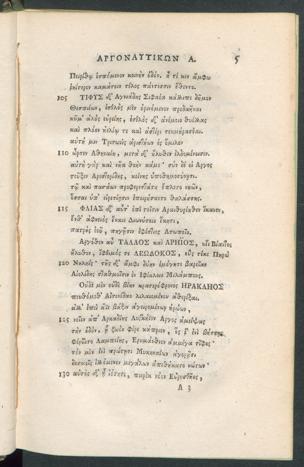 ΑΡΓΟΝΑΥΤΙΚΩΝ Α. 5
Πειρίθῳ ἑσπόμενον κοινὴν ὁδόν. ἦ τέ κεν ἄμφω
ῥηίτερον καμάτοιο τέλος πάντεσσιν ἔθεντο.
105 ΤΙΦΥΣ δ' Ἁγνιάδης Σιφαέα κάλλιπε δῆμον
Θεσπιέων, ἐσθλὸς μὲν ὀρινόμενον προδαῆναι
κῦμ' ἁλὸς εὐρείης, ἐσθλὸς δ' ἀνέμοιο θυέλλας
καὶ πλόον ἠελίῳ τε καὶ ἀστέρι τεκμήρασθαι.
αὐτή μιν Τριτωνὶς ἀριστήων ἐς ὅμιλον
110 ὦρσεν Ἀθηναίη, μετὰ δ' ἤλυθεν ἐλδομένοισιν.
αὐτὴ γὰρ καὶ νῆα θοὴν κάμε· σὺν δέ οἱ Ἄργος
τεῦξεν Ἀρεστορίδης, κείνης ὑποθημοσύνῃσι.
τῷ καὶ πασάων προφερεστάτη ἔπλετο νηῶν,
ὅσσαι ὑπ' εἰρεσίῃσιν ἐπειρήσαντο θαλάσσης.
115 ΦΛΙΑΣ δ' αὖτ' ἐπὶ τοῖσιν Ἀραιθυρέηθεν ἵκανεν,
ἔνθ' ἀφνειὸς ἔναιε Διωνύσοιο ἕκητι,
πατρὸς ἑοῦ, πηγῇσιν ἐφέστιος Ἀσωποῖο.
Ἀργόθεν αὖ ΤΑΛΑΟΣ καὶ ΑΡΗΙΟΣ, υἷε Βίαντος
ἤλυθον, ἴφθιμός τε ΛΕΩΔΟΚΟΣ, οὓς τέκε Πηρὼ
120 Νηληίς· τῆς δ' ἀμφὶ δύην ἐμόγησε βαρεῖαν
Αἰολίδης σταθμοῖσιν ἐν Ἰφίκλοιο Μελάμπους.
Οὐδὲ μὲν οὐδὲ βίην κρατερόφρονος ΗΡΑΚΛΗΟΣ
πευθόμεθ' Αἰσονίδαο λιλαιομένου ἀθερίξαι.
ἀλλ' ἐπεὶ ἄιε βάξιν ἀγειρομένων ἡρώων,
125 νεῖον ἀπ' Ἀρκαδίης Λυρκήιον Ἄργος ἀμείψας
τὴν ὁδὸν, ᾗ ζωὸν φέρε κάπριον, ὅς ῥ' ἐνὶ βήσσῃς
Φέρβετο Λαμπείης, Ἐρυμάνθιον ἂμ μέγα τῖφος·
τὸν μὲν ἐνὶ πρώτῃσι Μυκηναίων ἀγορῇσιν
δεσμοῖς ἰλλόμενον μεγάλων ἀπεθήκατο νώτων·
130 αὐτὸς δ' ᾗ ἰότητι, παρὲκ νόον Εὐρυσθῆος,
A 3